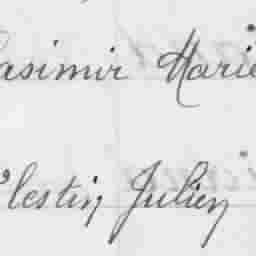 Casimir Marie
Célestin Julien